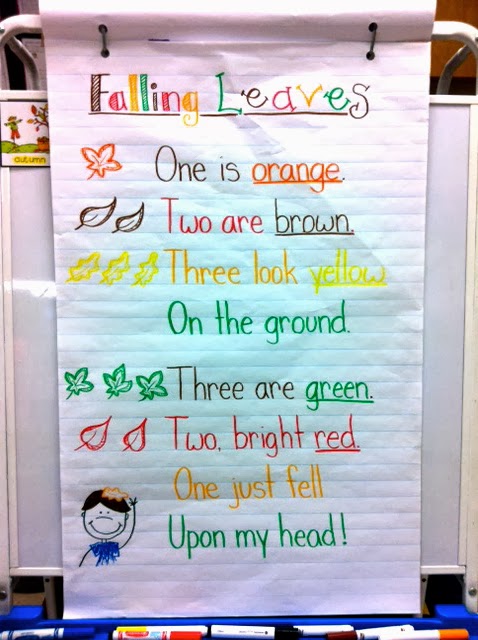 Falling Leaves
autumn
One is orange.
Two are brown.
Three look yellow
On the ground.
Three are green.
Two, bright red.
One just fell
Upon my head!